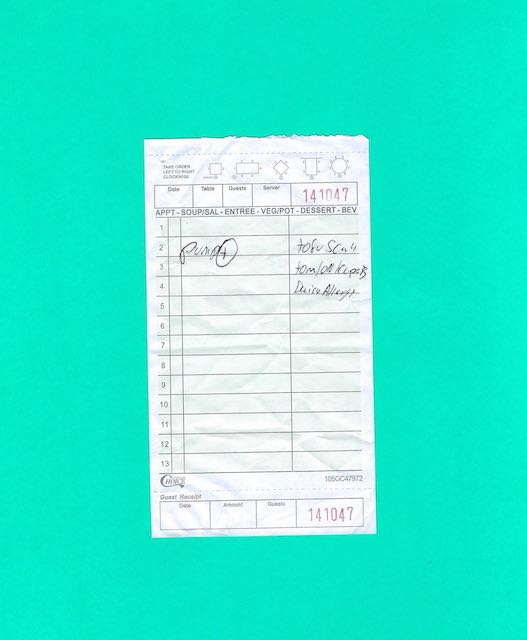 TAKE ORDER
LEFT TO RIGHT
CLOCKWISE
Date Table Guests Server 141047
APPT - SOUP/SAL - ENTREE - VEG/POT - DESSERT - BEV
1
2 tofu
3
4 Allergy
5
6
7
8
9
10
11
12
13
CHOICE 105GC47972
Guest Receipt
Date Amount Guests 141047